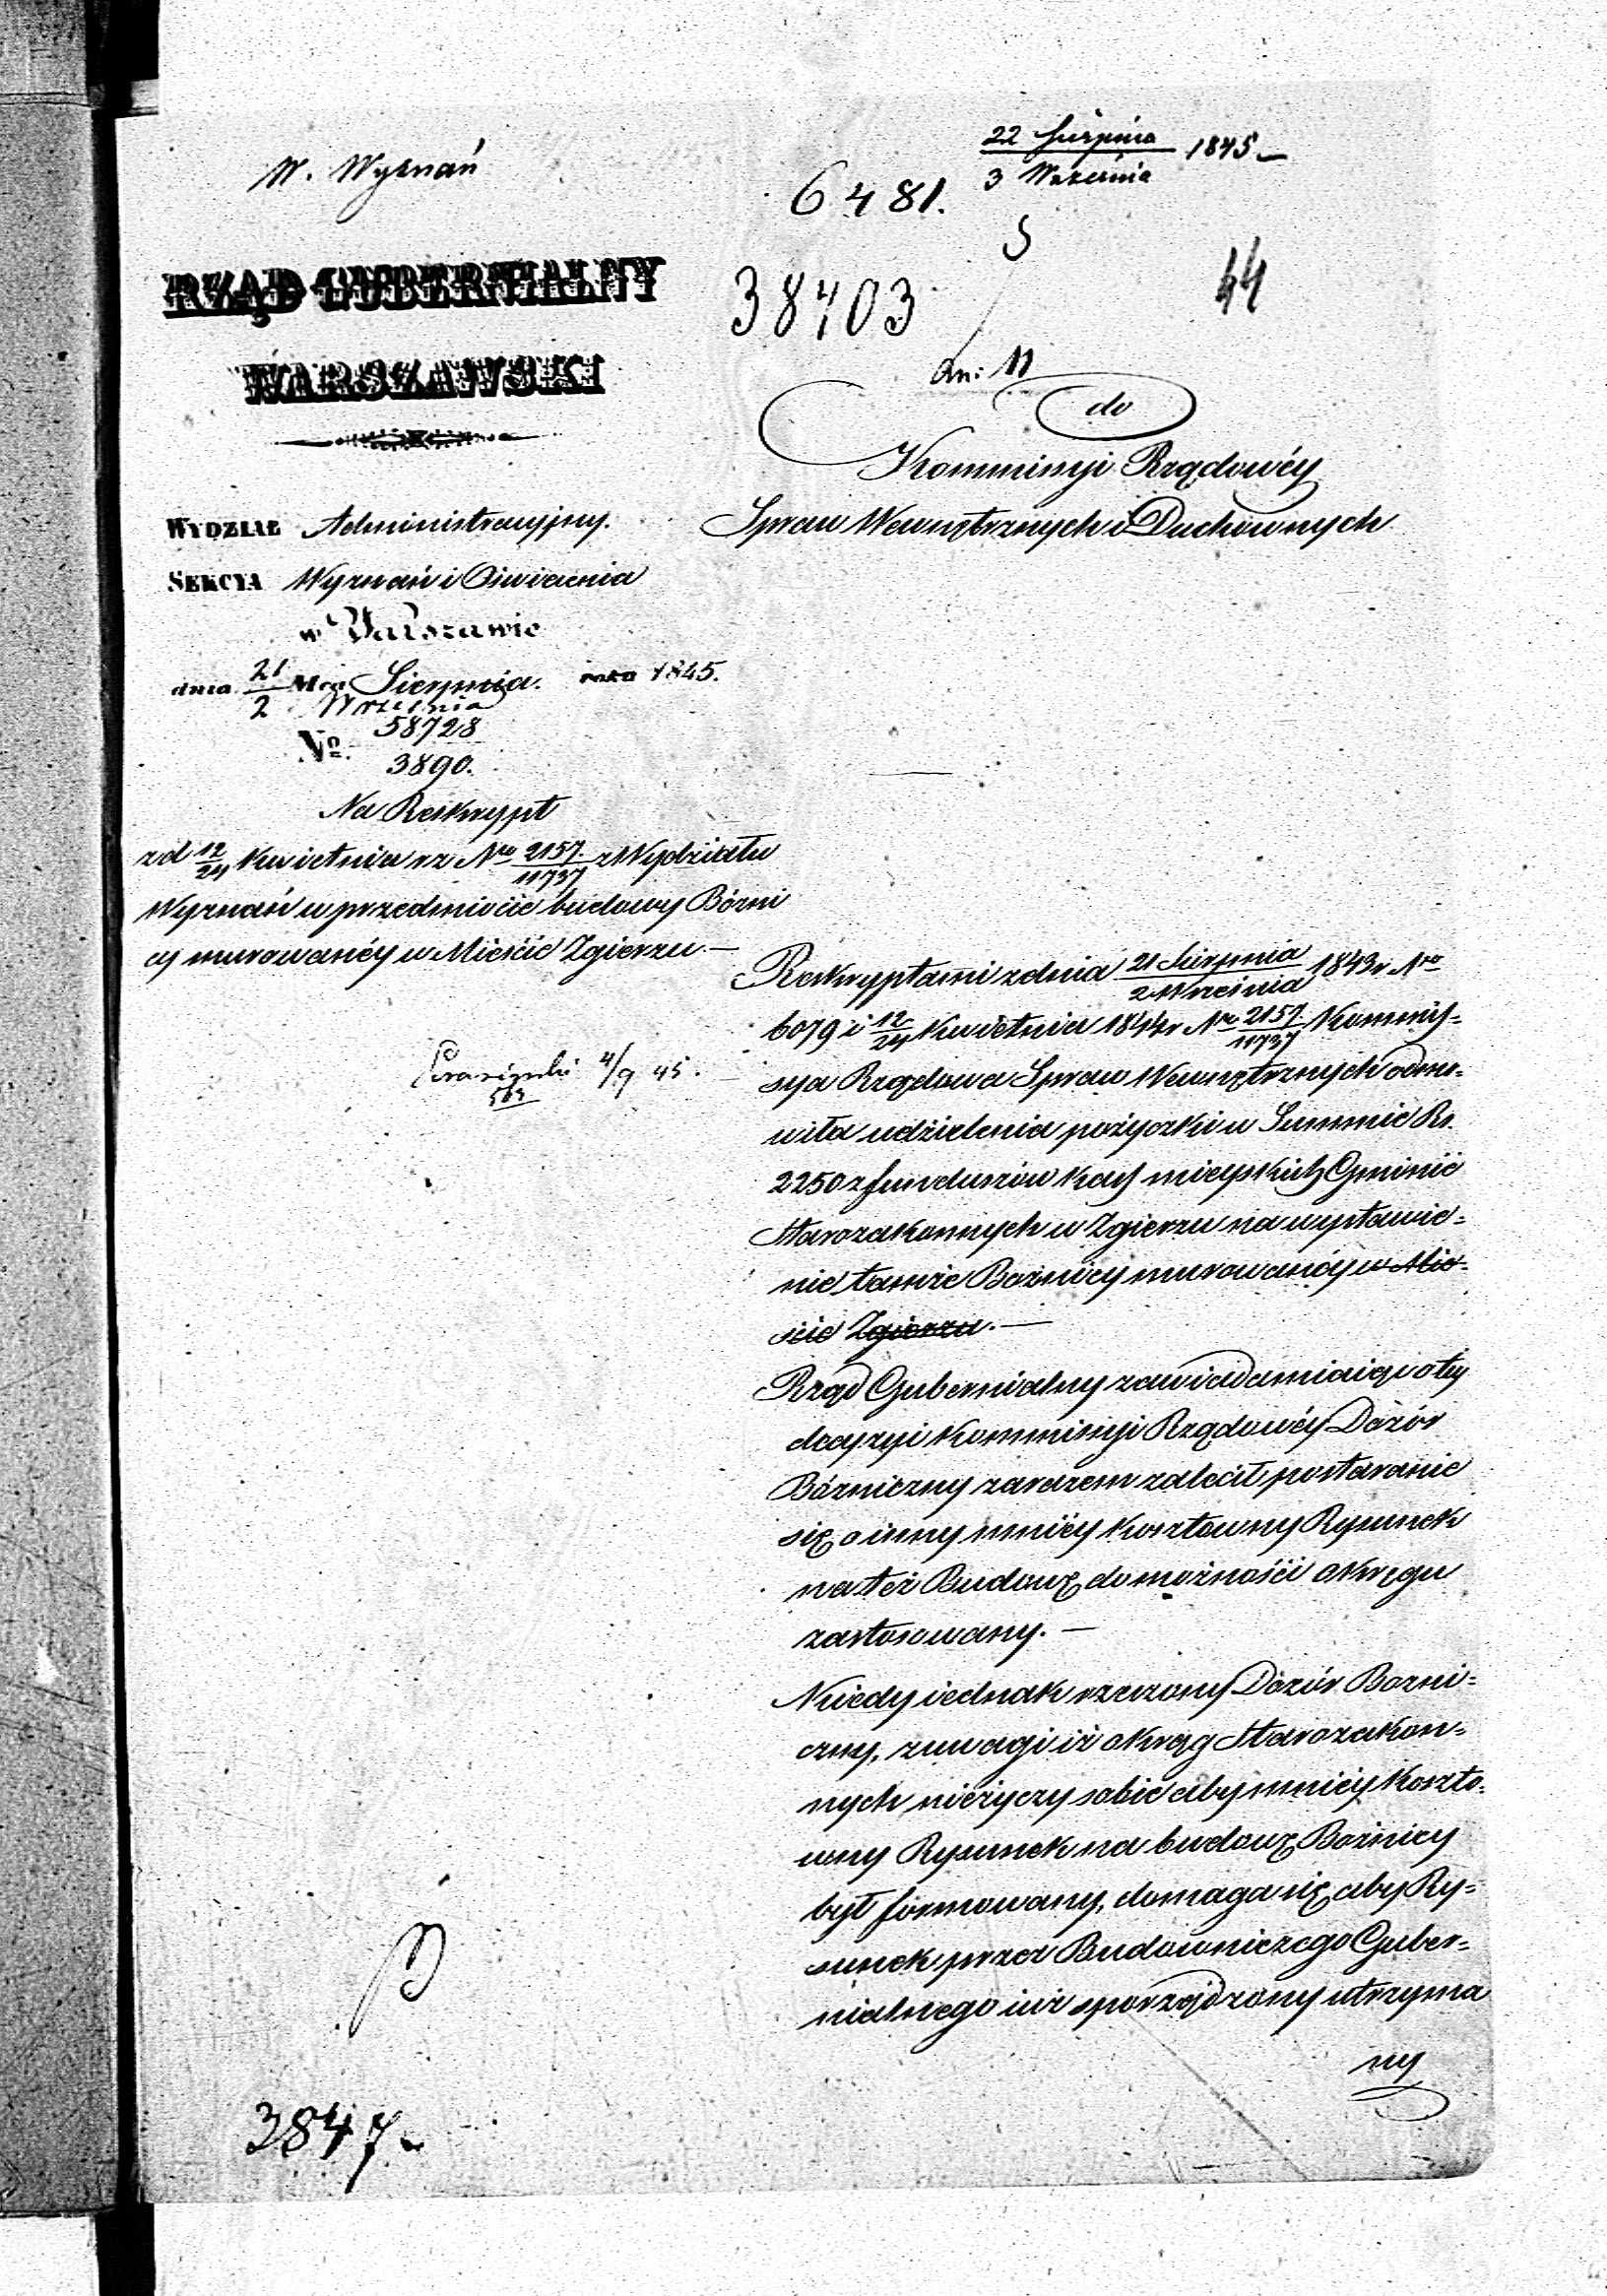 W. Wyznań
22 Sierpnia
3 Września 1845 —
6481.
S
38403
44
dn: 11
RZĄD GUBERNIALNY
WARSZAWSKI
do
Kommissyi Rządowéy
Spraw Wewnętrznych i Duchownych
WYDZIAŁ Administracyjny.
SEKCYA Wyznań i Oświecenia
w Warszawie
dnia 21/2 Mca Sierpnia roku 1845.
Września
No. 58728
3890.
Na Reskrypt
z d 12/24 Kwietnia rz Nro 2157./11737 z Wydziału
Wyznań w przedmiocie budowy Bózni
cy murowanéy w Mieście Zgierzu. —
4/9 45.
Reskryptami z dnia 21 Sierpnia/2 Września 1843 r Nro
6079 i 12/24 Kwietnia 1844 r Nro 2157./11737 Kommis=
sya Rządowa Spraw Wewnętrznych odmó=
wiła udzielenia pożyczki w Summie Rs.
2250 z funduszów Kass mieyskich Gminie
Starozakonnych w Zgierzu na wystawie=
nie tamże Bożnicy murowanéy w Mie=
ście Zgierzu. —
Rząd Gubernialny zawiadamiaiąc o téy
decyzyi Kommissyi Rządowéy Dozór
Bózniczny zarazem zalecił postaranie
się o inny mniéy kosztowny Rysunek
na też Budowę do możności okręgu
zastosowany. —
Kiedy iednak rzeczony Dozór Bozni=
czny, z uwagi iż okręg Starozakon=
nych nieżyczy sobie aby mniéy koszto=
wny Rysunek na budowę Bożnicy
był formowany, domaga się, aby Ry=
sunek przez Budowniczego Guber=
nialnego iuż sporządzony utrzyma
ny
3847.